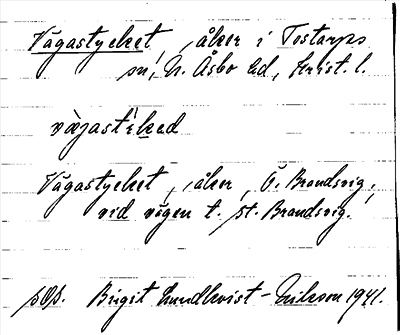 Vägastycket, åker i Tostarps
sn, N. Åsbo hd, Krist. l.
vägastycket, åker, Ö. Brandsvig,
vid vägen t. St. Brandsvig.
Birgit Lundkvist-Erikson 1941.